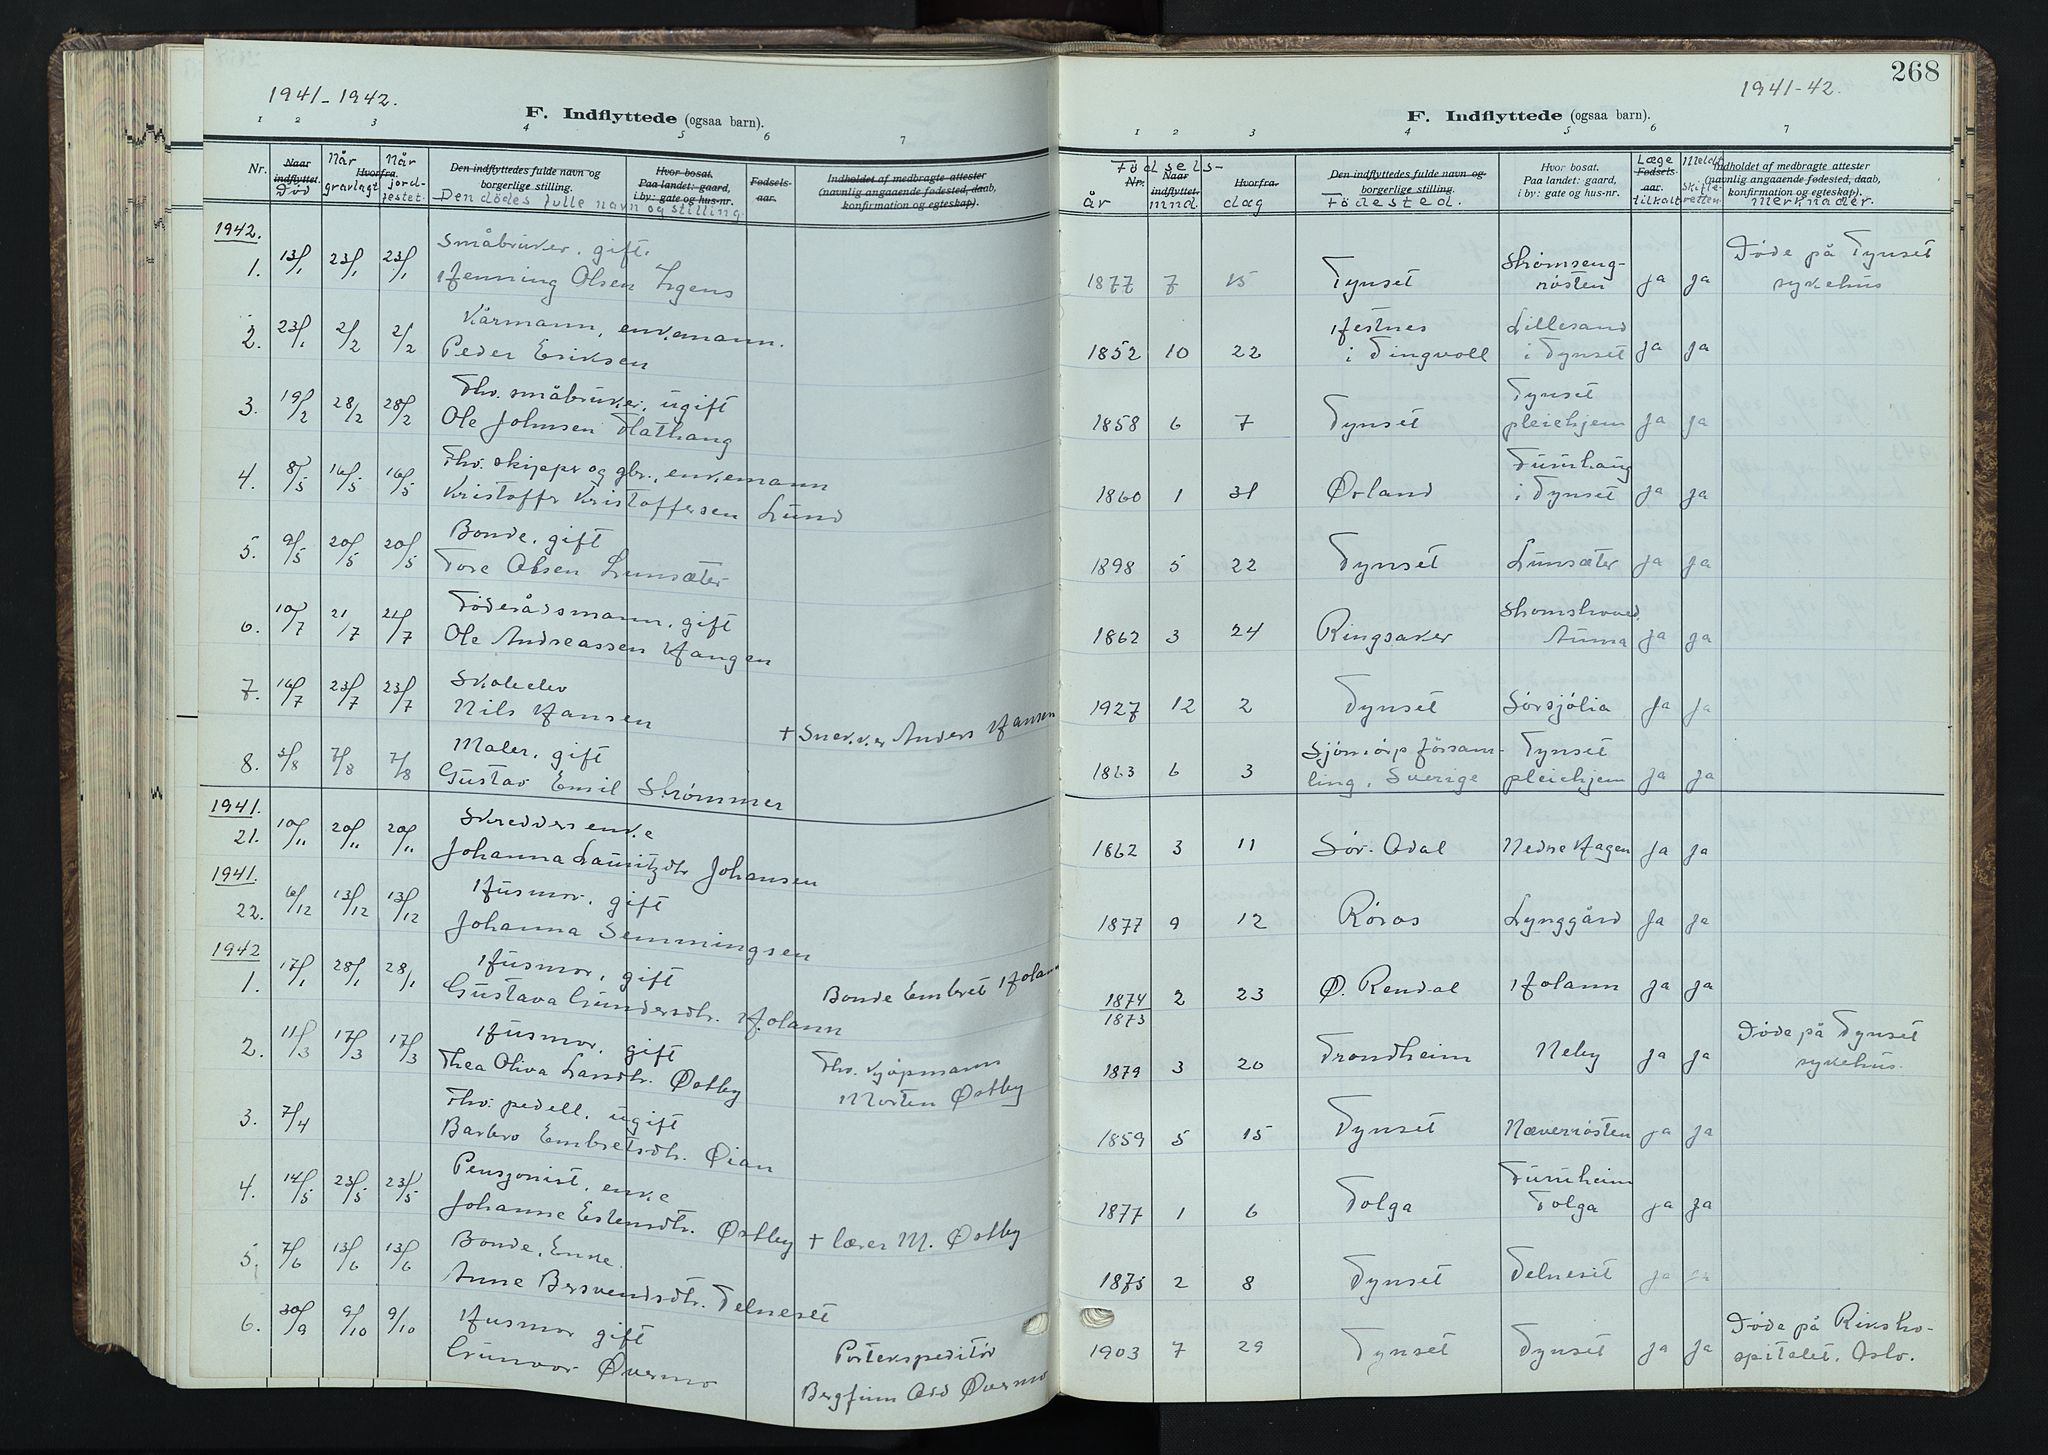 1941-1942.
F. Indflyttede (ogsaa barn).
1 2 3 4 5 6 7
Nr. Naar indflyttet. Død Når Hvorfra. gravlagt Når jordfestet. Den indflyttedes fulde navn og borgerlige stilling. Hvor bosat. Paa landet: gaard, i by: gate og hus-nr. Fødselsaar. Indholdet af medbragte attester (navnlig angaaende fødested, daab, konfirmation og egteskap).
Den dødes fulle navn og stilling
1942.
1. 13/1 23/1 23/1 Småbruker, gift.
Henning Olsen Lgens
2. 23/1 2/2 2/2 Kårmann, enkemann.
Peder Eriksen
3. 19/2 28/2 28/2 Fhv. småbruker, ugift
Ole Johnsen Flathaug
4. 8/5 16/5 16/5 Fhv. skipper og gbr., enkemann
Kristoffer Kristoffersen Lund
5. 9/5 20/5 20/5 Bonde, gift
Tore Olsen Lunsæter
6. 10/7 21/7 21/7 Føderådsmann, gift
Ole Andreassen Haugen
7. 16/7 23/7 23/7 Skoleelev
Nils Hansen + Snekker Anders Hansen
8. 3/8 7/8 7/8 Maler, gift
Gustav Emil Strømmer
1941.
21. 10/11 20/11 20/11 Skreddersenke
Johanna Lauritzdtr Johansen
1941.
22. 6/12 13/12 13/12 Husmor, gift
Johanna Semmingsen
1942
1. 17/1 28/1 28/1 Husmor, gift Bonde Embret Holann
Gustava Gundersdtr. Holann
2. 11/3 17/3 17/3 Husmor, gift Fhv. kjøpmann
Thea Oliva Larsdtr. Østby Morten Østby
3. 7/4 Fhv. pedell, ugift
Barbro Embretsdtr. Øian
4. 14/5 23/5 23/5 Pensjonist, enke
Johanne Estensdtr. Østby + lærer M. Østby
5. 7/6 13/6 13/6 Bonde, Enke
Anne Bersvendsdtr. Telneset
6. 30/9 9/10 9/10 Husmor gift Postekspeditør
Gunvor Øvermo Bergfinn Odd Øvermo
268
1941-42.
F. Indflyttede (ogsaa barn).
1 2 3 4 5 6 7
Fødsels-
Nr. år Naar indflyttet. mnd Hvorfra. dag Den indflyttedes fulde navn og borgerlige stilling. Fødested. Hvor bosat. Paa landet: gaard, i by: gate og hus-nr. Læge Fødselsaar. tilkalt Meldt skifteretten Indholdet af medbragte attester (navnlig angaaende fødested, daab, konfirmation og egteskap). Merknader.
Strømseng- Døde på Tynset
1877 7 15 Tynset røsten ja ja sykehus
Festnes Lillesand
1852 10 22 i Tingvoll i Tynset ja ja
Tynset
1858 6 7 Tynset pleiehjem ja ja
Furuhaug
1860 1 31 Ørland i Tynset ja ja
1898 5 22 Tynset Lunsæter ja ja
1862 3 24 Ringsaker Auma ja ja
1927 12 2 Tynset Sørsjølia ja ja
Tynset
1863 6 3 ling, Sverige pleiehjem ja ja
1862 3 11 Sør-Odal Nedre Hagen ja ja
1877 9 12 Røros Lynggård ja ja
1874 2 23 Ø. Rendal Holann ja ja
1873 Døde på Tynset
1879 3 20 Trondheim Neby ja ja sykehus.
1859 5 15 Tynset Næverrøsten ja ja
Furuheim
1877 1 6 Tolga Tolga ja ja
1873 2 8 Tynset Telneset ja ja
Døde på Riksho-
1903 7 29 Tynset Tynset ja ja spitalet, Oslo.